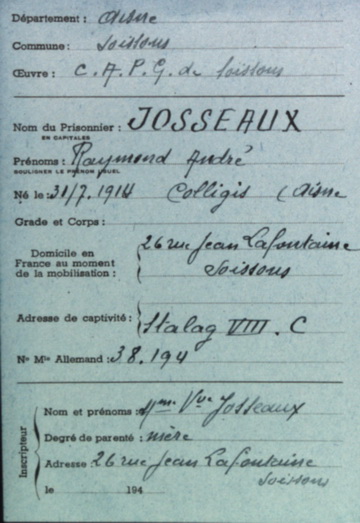 Département : Aisne
Commune : Soissons
Œuvre : C.A.P.G. de Soissons
Nom du Prisonnier : JOSSEAUX
EN CAPITALES
Prénoms : Raymond André
SOULIGNER LE PRÉNOM USUEL
Né le : 31/7.1914 Colligis (Aisne
Grade et Corps :
Domicile en
France au moment
de la mobilisation :
26 rue Jean Lafontaine
Soissons
Adresse de captivité : Stalag VIII. C
No Mle Allemand : 38.194
Inscripteur
Nom et prénoms : Mme Vve Josseaux
Degré de parenté : mère
Adresse 26 rue Jean Lafontaine
Soissons
le 194